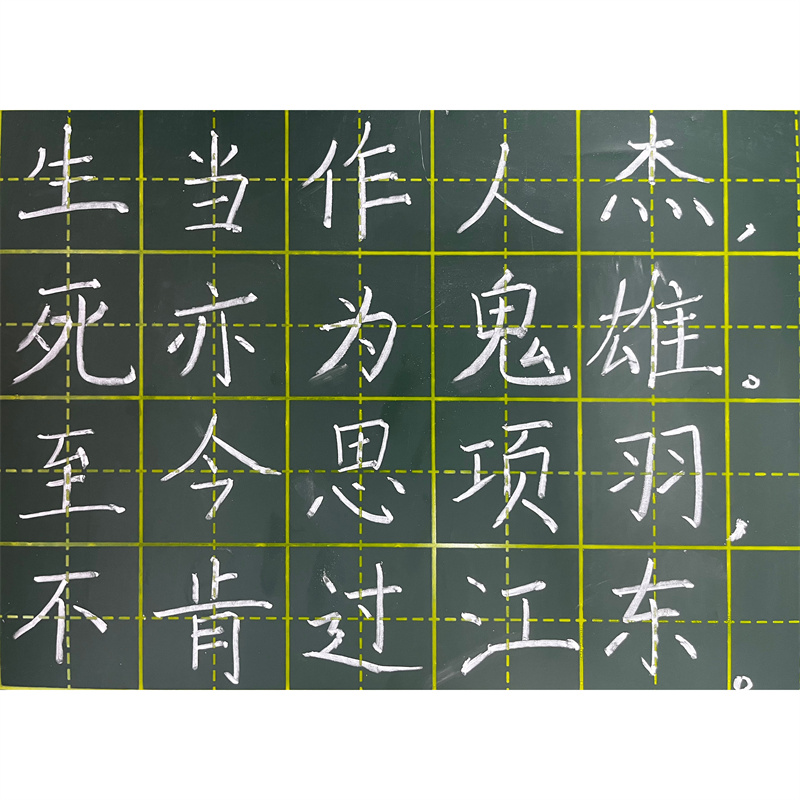 生当作人杰,
死亦为鬼雄。
至今思项羽,
不肯过江东。